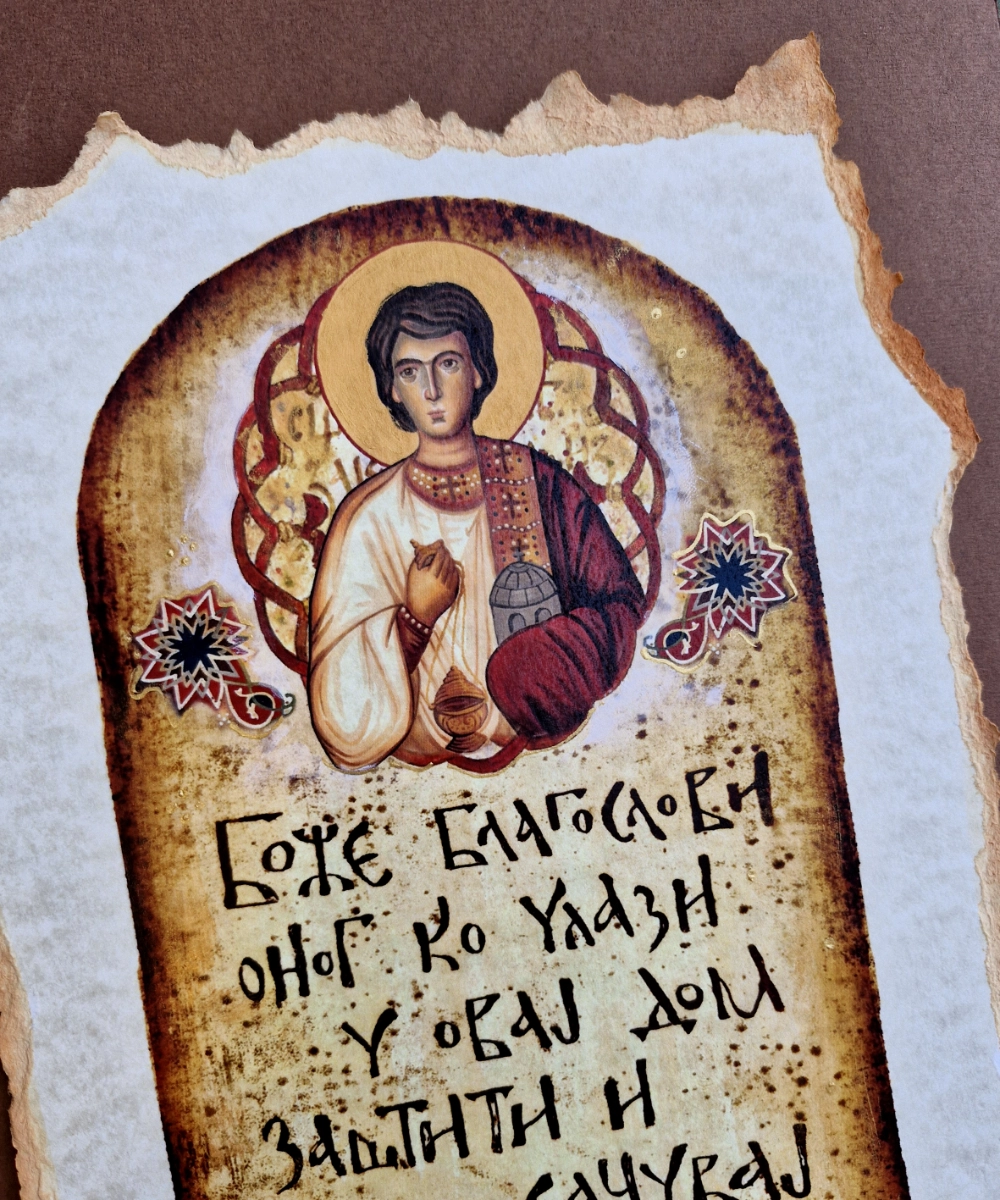 Боже Благослови
оног ко улази
у овај дом
заштити и
сачувај